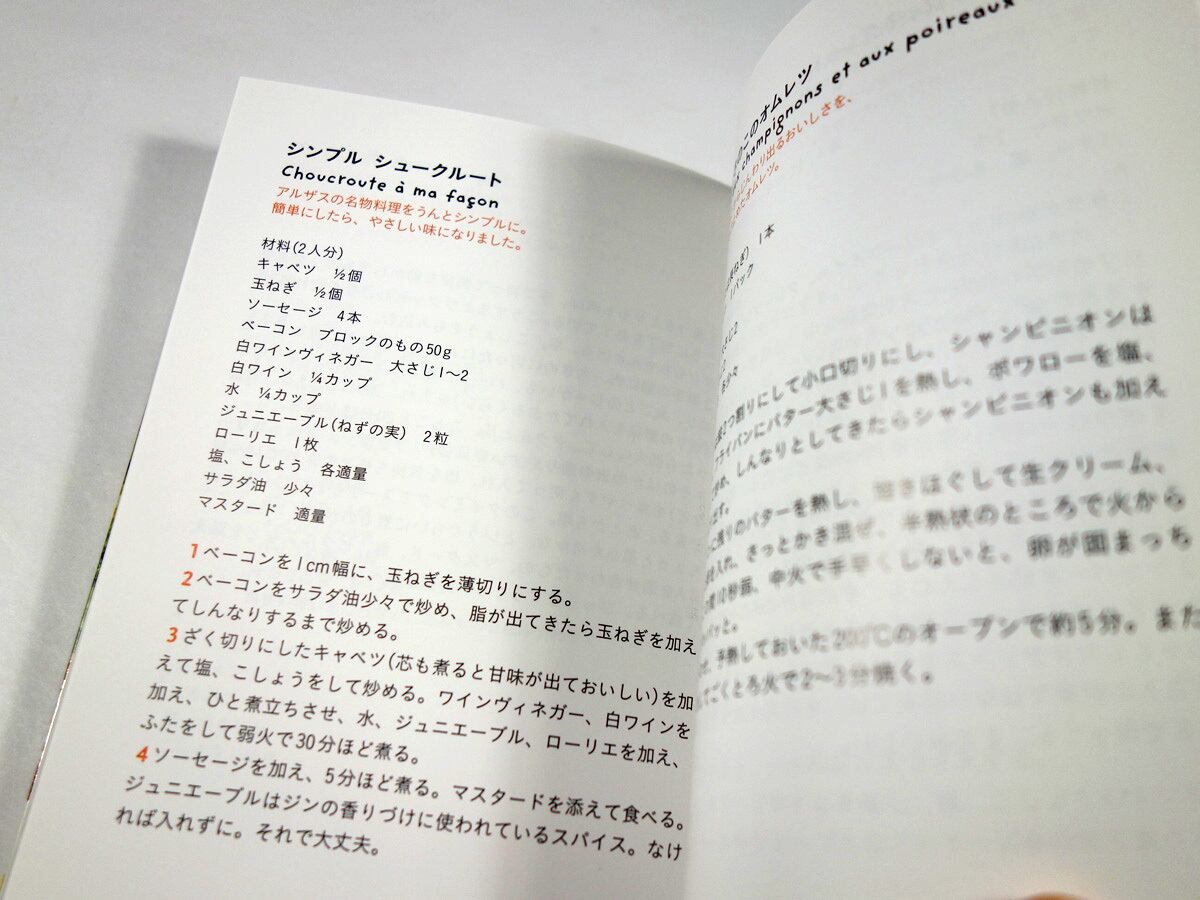 シンプル シュークルート
Choucroute à ma façon
アルザスの名物料理をうんとシンプルに。
簡単にしたら、やさしい味になりました。
材料(2人分)
キャベツ ½個
玉ねぎ ½個
ソーセージ 4本
ベーコン ブロックのもの50g
白ワインヴィネガー 大さじ1〜2
白ワイン ¼カップ
水 ¼カップ
ジュニエーブル(ねずの実) 2粒
ローリエ 1枚
塩、こしょう 各適量
サラダ油 少々
マスタード 適量
1 ベーコンを1cm幅に、玉ねぎを薄切りにする。
2 ベーコンをサラダ油少々で炒め、脂が出てきたら玉ねぎを加え
てしんなりするまで炒める。
3 ざく切りにしたキャベツ(芯も煮ると甘味が出ておいしい)を加
えて塩、こしょうをして炒める。ワインヴィネガー、白ワインを
加え、ひと煮立ちさせ、水、ジュニエーブル、ローリエを加え、
ふたをして弱火で30分ほど煮る。
4 ソーセージを加え、5分ほど煮る。マスタードを添えて食べる。
ジュニエーブルはジンの香りづけに使われているスパイス。なけ
れば入れずに。それで大丈夫。
のこのオムレツ
champignons et aux poireaux
じんわり出るおいしさを、
オムレツ。
ねぎ) 1本
1パック
2つ割りにして小口切りにし、シャンピニオンは
ライパンにバター大さじ1を熱し、ポワローを塩、
しんなりとしてきたらシャンピニオンも加え
残りのバターを熱し、溶きほぐして生クリーム、
入れ、さっとかき混ぜ、半熟状のところで火から
10秒弱、中火で手早くしないと、卵が固まっち
予熱しておいた200℃のオーブンで約5分。また
ごくとろ火で2〜3分焼く。